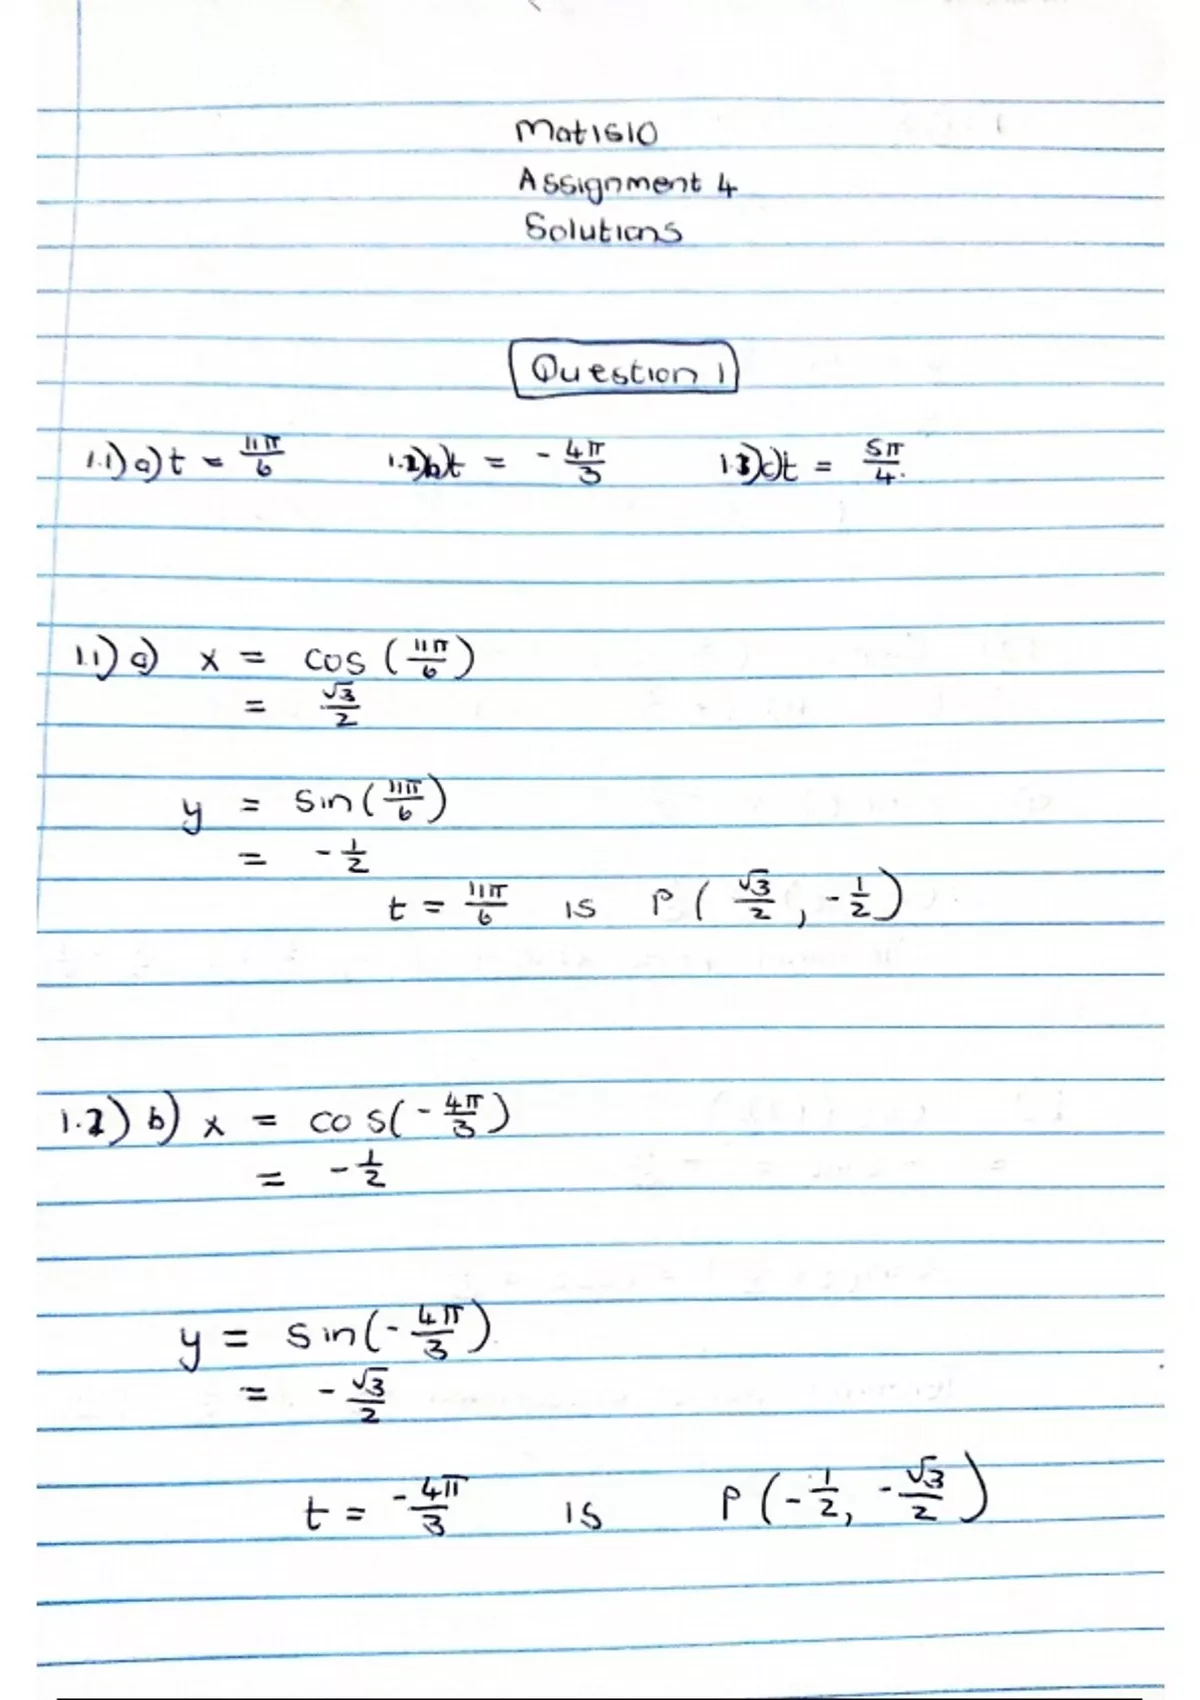 Mat1610
Assignment 4
Solutions
Question 1
1.1) a) t = 11π/6 1.2) b) t = - 4π/3 1.3) c) t = 5π/4.
1.1) a) x = cos (11π/6)
= √3/2
y = sin (11π/6)
= - 1/2
t = 11π/6 is P ( √3/2 , - 1/2 )
1.2) b) x = cos(- 4π/3)
= - 1/2
y = sin(- 4π/3)
= - √3/2
t = - 4π/3 is P (- 1/2, - √3/2 )